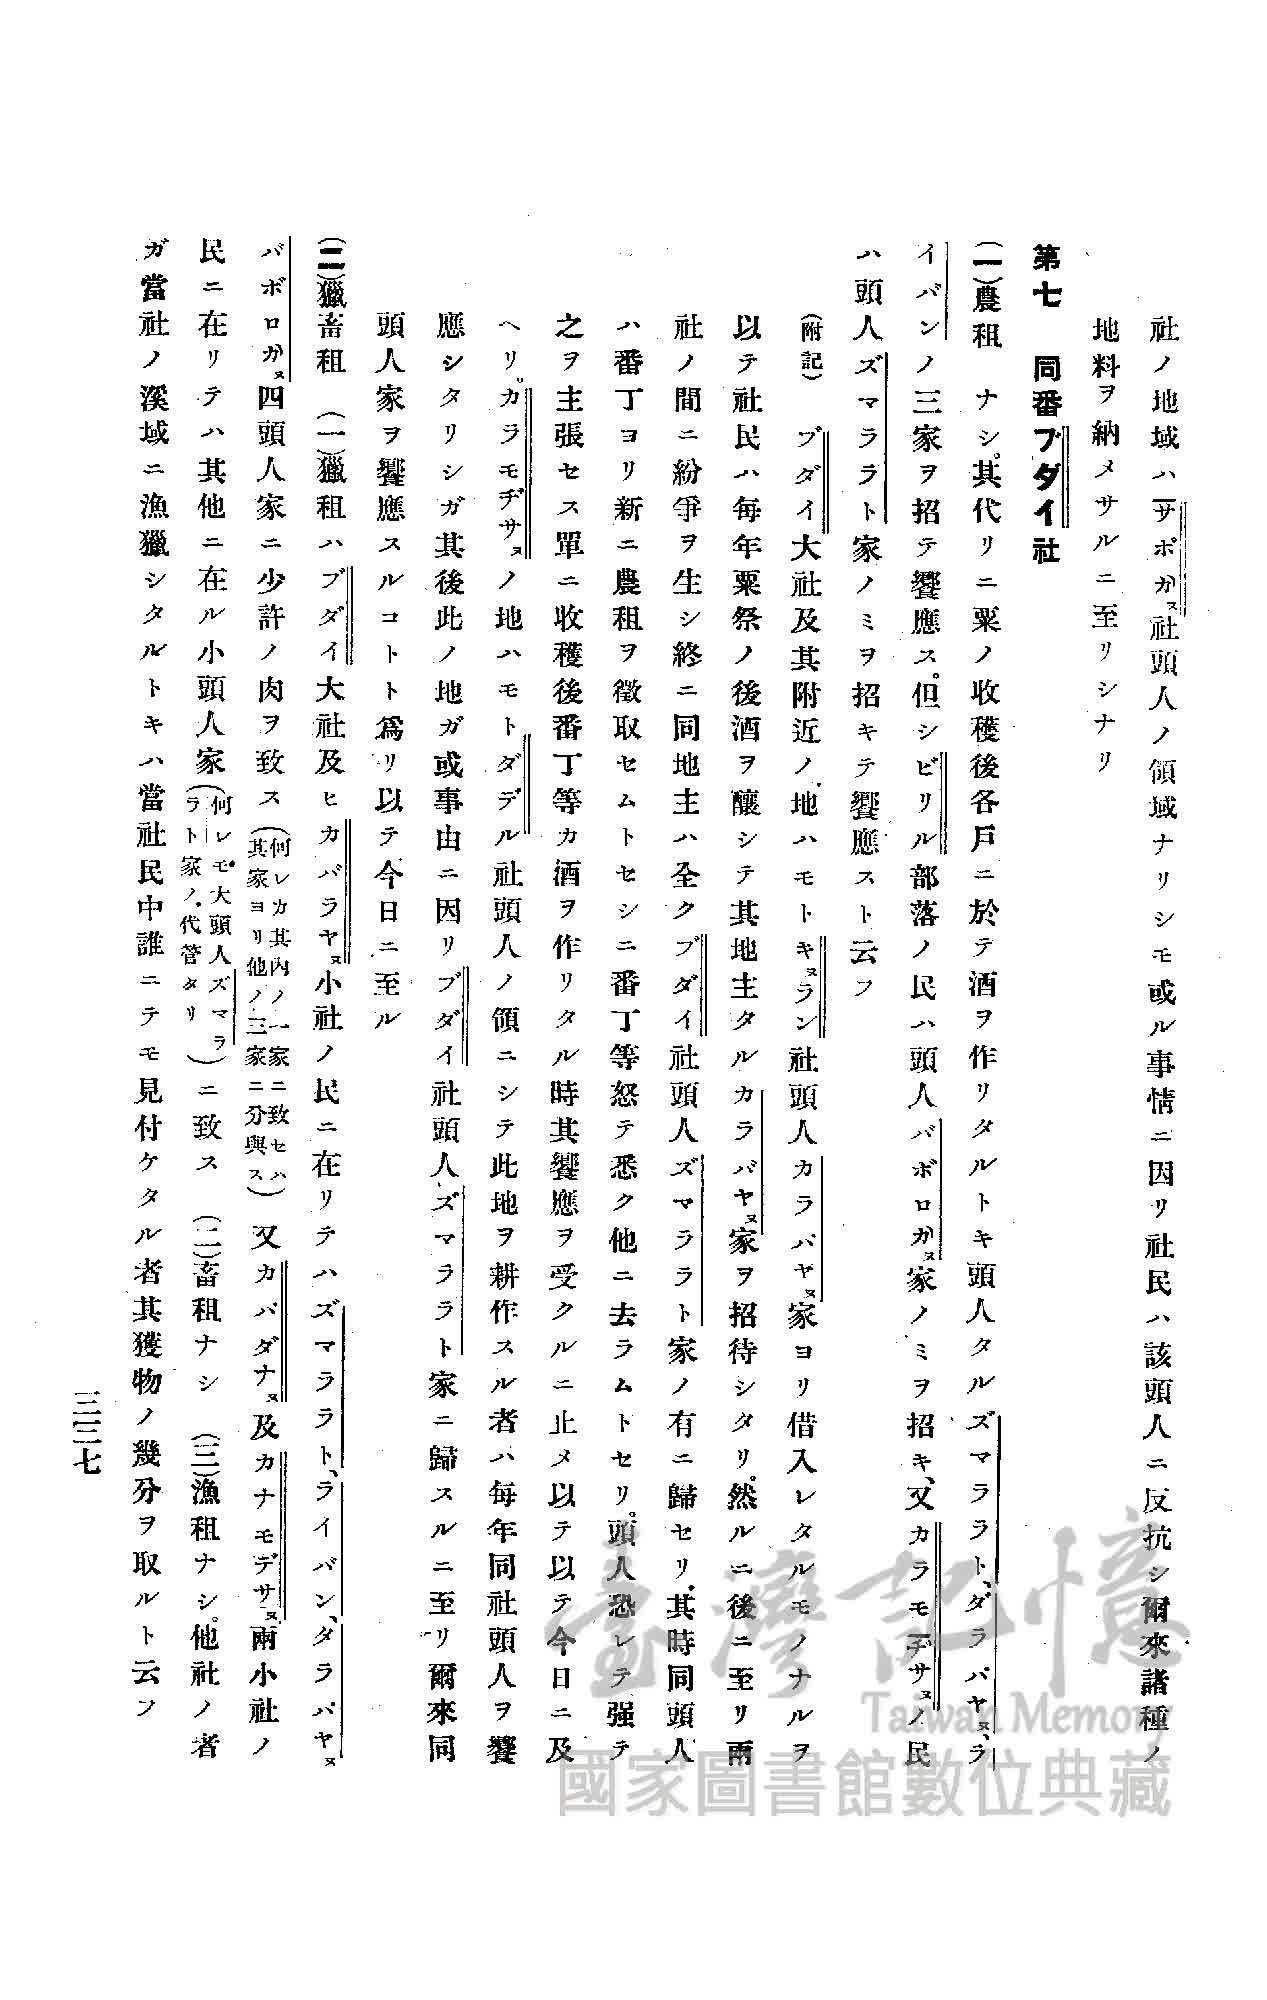 社ノ地域ハサポガㇴ社頭人ノ領域ナリシモ或ル事情ニ因リ社民ハ該頭人ニ反抗シ爾來諸種ノ
地料ヲ納メサルニ至リシナリ
第七　同番ブダイ社
(一)農租　ナシ。其代リニ粟ノ收穫後各戸ニ於テ酒ヲ作リタルトキ頭人タルズマララト、ダラパヤㇴ、ラ
イバンノ三家ヲ招テ饗應ス。但シビリル部落ノ民ハ頭人バボロガㇴ家ノミヲ招キ、又カラモヂサㇴノ民
ハ頭人ズマララト家ノミヲ招キテ饗應スト云フ
(附記)　ブダイ大社及其附近ノ地ハモトキㇴラン社頭人カラバヤㇴ家ヨリ借入レタルモノナルヲ
以テ社民ハ每年粟祭ノ後酒ヲ釀シテ其地主タルカラバヤㇴ家ヲ招待シタリ。然ルニ後ニ至リ兩
社ノ間ニ紛爭ヲ生シ終ニ同地主ハ全クブダイ社頭人ズマララト家ノ有ニ歸セリ、其時同頭人
ハ番丁ヨリ新ニ農租ヲ徵取セムトセシニ番丁等怒テ悉ク他ニ去ラムトセリ。頭人恐レテ强テ
之ヲ主張セス單ニ收穫後番丁等カ酒ヲ作リタル時其饗應ヲ受クルニ止メ以テ以テ今日ニ及
ヘリ。カラモヂサㇴノ地ハモトダデル社頭人ノ領ニシテ此地ヲ耕作スル者ハ每年同社頭人ヲ饗
應シタリシガ其後此ノ地ガ或事由ニ因リブダイ社頭人ズマララト家ニ歸スルニ至リ爾來同
頭人家ヲ饗應スルコトト爲リ以テ今日ニ至ル
(二)獵畜租　(一)獵租ハブダイ大社及ヒカバラヤㇴ小社ノ民ニ在リテハズマララト、ライバン、ダラパヤㇴ
バボロガㇴ四頭人家ニ少許ノ肉ヲ致ス(何レカ其內ノ一家ニ致セハ其家ヨリ他ノ三家ニ分與ス)又カバダナㇴ及カナモデサㇴ兩小社ノ
民ニ在リテハ其他ニ在ル小頭人家(何レモ大頭人ズマララト家ノ代管タリ)ニ致ス　(二)畜租ナシ　(三)漁租ナシ。他社ノ者
ガ當社ノ溪域ニ漁獵シタルトキハ當社民中誰ニテモ見付ケタル者其獲物ノ幾分ヲ取ルト云フ
三三七
臺灣記憶
Taiwan Memory
國家圖書館數位典藏